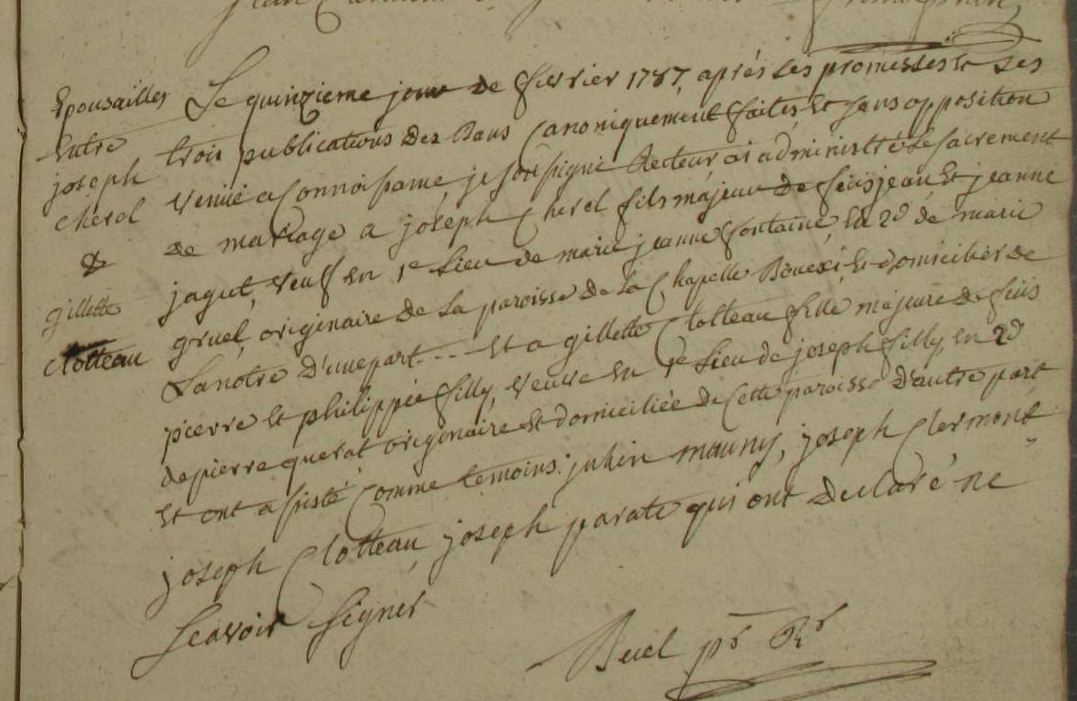 Epousailles
entre
joseph
cherel
&
gillette
Clotteau
Le quinzieme jour de fevrier 1787, aprés les promesses et les
trois publications des Bans Canoniquement faites et sans opposition
venue a Connoissance je soussigné Recteur ai administré le sacrement
de mariage a joseph Cherel fils majeur de feus jean Et jeanne
jagut, veuf en 1e Lieu de marie jeanne fontaine en 2d de marie
gruel, originaire de la paroisse de la Chapelle Bouexi et domicilier de
La notre D'une part --- et a gillette Clotteau fille majeure de feus
pierre et philippée filly, veuve en 1e Lieu de joseph filly, en 2d
de pierre querat origenaire et domiciliée de Cette paroisse D'autre part
et ont assisté Comme temoins: julien mauny, joseph Clermont
joseph Clotteau joseph parate qui ont declaré ne
scavoir signer
pr Rr